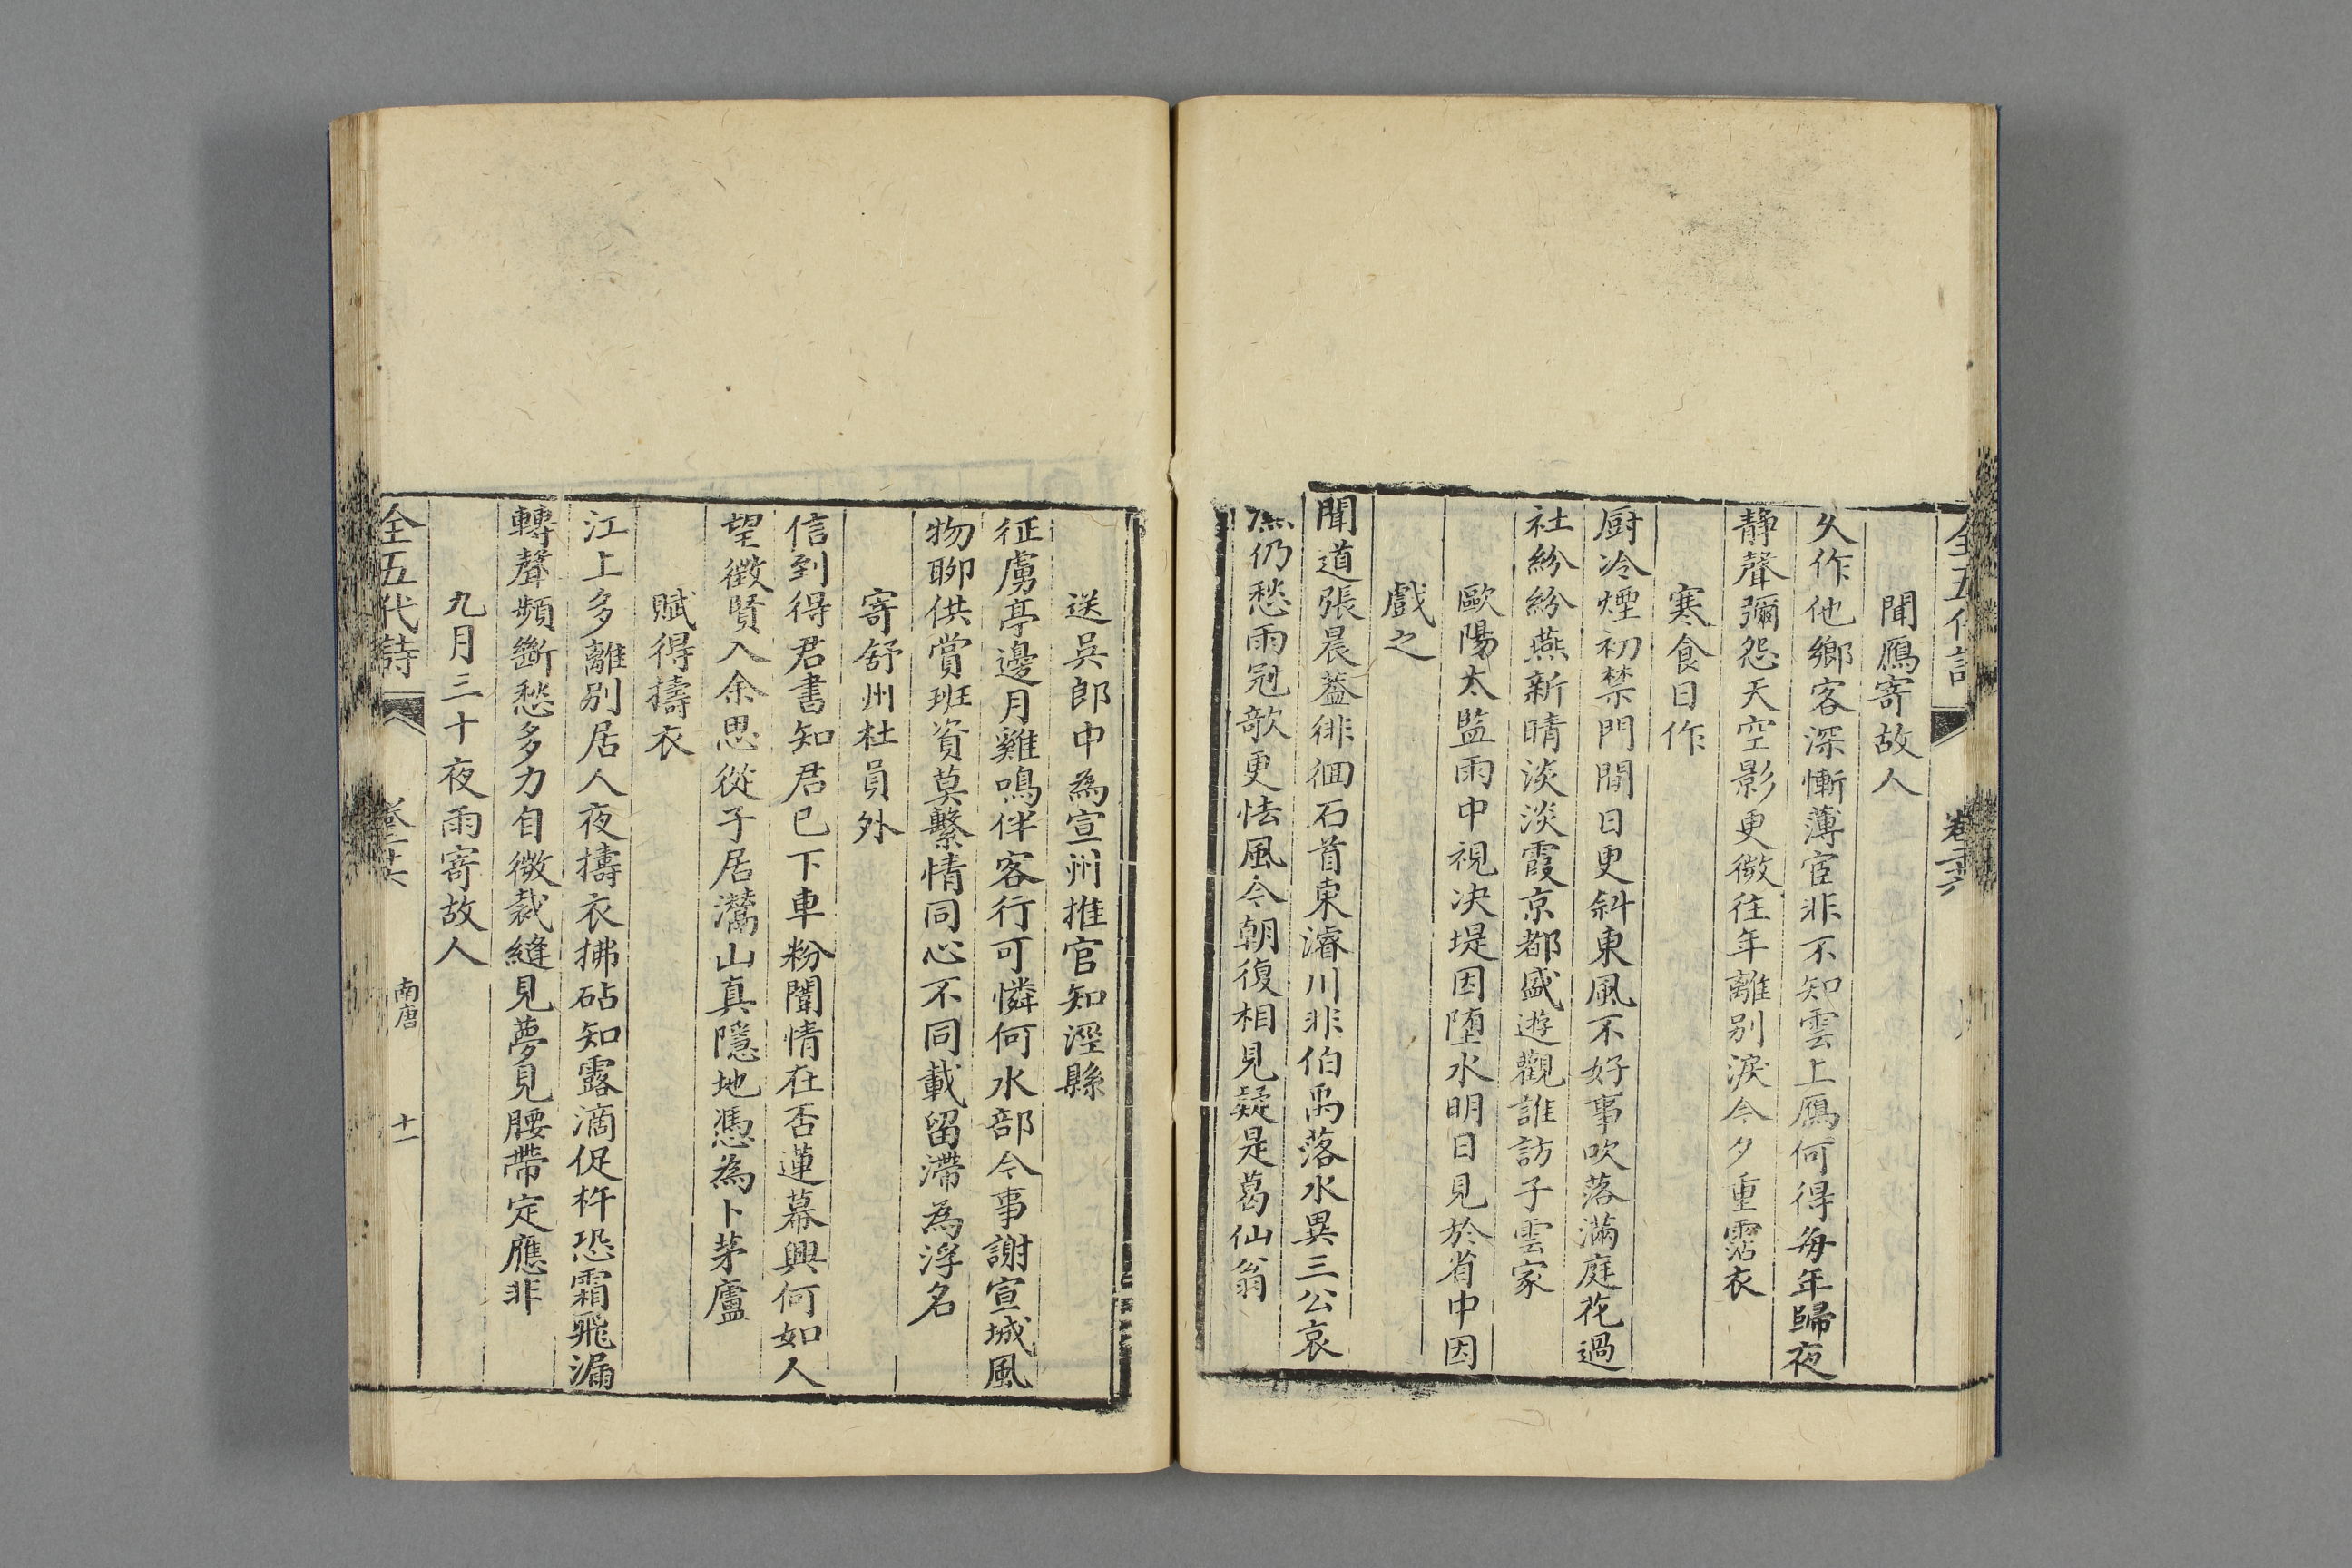 全五代詩 卷二十六
聞鴈寄故人
久作他鄉客深慚薄宦非不知雲上鴈何得每年歸夜
静聲彌怨天空影更微往年離别淚今夕重霑衣
寒食日作
厨冷煙初禁門閒日更斜東風不好事吹落滿庭花過
社紛紛燕新晴淡淡霞京都盛遊觀誰訪子雲家
歐陽太監雨中視决堤因墮水明日見於省中因
戲之
聞道張晨蓋徘徊石首東濬川非伯禹落水異三公衰
仍愁雨冠欹更怯風今朝復相見疑是葛仙翁
送吳郎中為宣州推官知涇縣
征虜亭邊月雞鳴伴客行可憐何水部今事謝宣城風
物聊供賞班資莫繫情同心不同載留滯為浮名
寄舒州杜員外
信到得君書知君已下車粉闈情在否蓮幕興何如人
望徵賢入余思從子居灊山真隱地憑為卜茅廬
賦得擣衣
江上多離别居人夜擣衣拂砧知露滴促杵恐霜飛漏
轉聲頻斷愁多力自微裁縫見夢見腰帶定應非
九月三十夜雨寄故人
全五代詩 卷二十六 南唐 十一